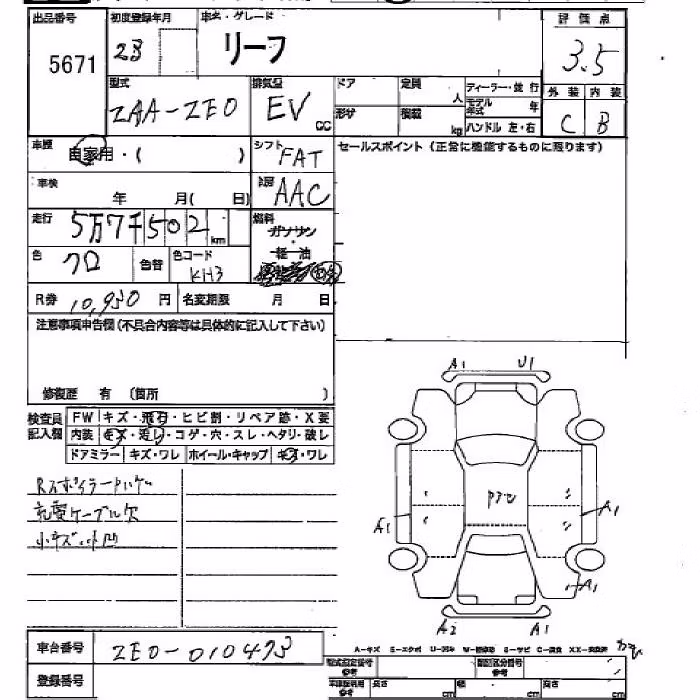 出品番号 初度登録年月 車名・グレード 評価点
5671 23 リーフ 3.5
型式 排気量 ドア 定員 人 ディーラー・並行 外装 内装
ZAA-ZE0 EV CC 形状 積載 kg モデル年式 年 C B
ハンドル 左・右
車歴 自家用・( ) シフト FAT セールスポイント (正常に機能するものに限ります)
車検 年 月( 日) AAC
走行 5万7千502km 燃料 ガソリン
色 クロ 色替 色コード KH3 軽油
R券 10,950 円 名変期限 月 日
注意事項申告欄 (不具合内容等は具体的に記入して下さい)
修復歴 有 (箇所 )
検査員 FW キズ・飛石・ヒビ割・リペア跡・X要
記入欄 内装 キズ・汚レ・コゲ・穴・スレ・ヘタリ・破レ
ドアミラー キズ・ワレ ホイール・キャップ キズ・ワレ
充電ケーブル欠
小キズ・小凹
A1 U1
A1 A1
A1
A2 A1
車台番号 ZE0-010473
登録番号
型式指定番号 参考 類別区分番号 参考
長さ cm 幅 cm 高さ cm